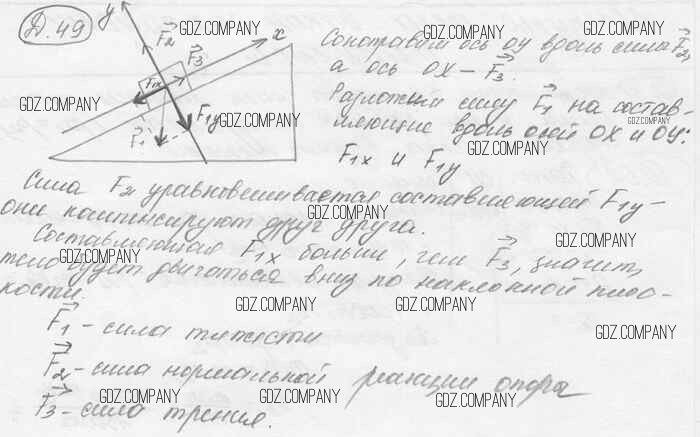 Д.49
y
F₂
F₃
x
F₁ₓ
F₁y
F₁
Сонаправим ось OY вдоль силы F₂,
а ось OX – F₃.
Разложим силу F₁ на состав-
ляющие вдоль осей OX и OY:
F₁ₓ и F₁y
Сила F₂ уравновешивается составляющей F₁y –
они компенсируют друг друга.
Составляющая F₁ₓ больше, чем F₃, значит,
тело будет двигаться вниз по наклонной плос-
кости.
F₁ – сила тяжести
F₂ – сила нормальной реакции опоры
F₃ – сила трения.
GDZ.COMPANY
GDZ.COMPANY
GDZ.COMPANY
GDZ.COMPANY
GDZ.COMPANY
GDZ.COMPANY
GDZ.COMPANY
GDZ.COMPANY
GDZ.COMPANY
GDZ.COMPANY
GDZ.COMPANY
GDZ.COMPANY
GDZ.COMPANY
GDZ.COMPANY
GDZ.COMPANY
GDZ.COMPANY